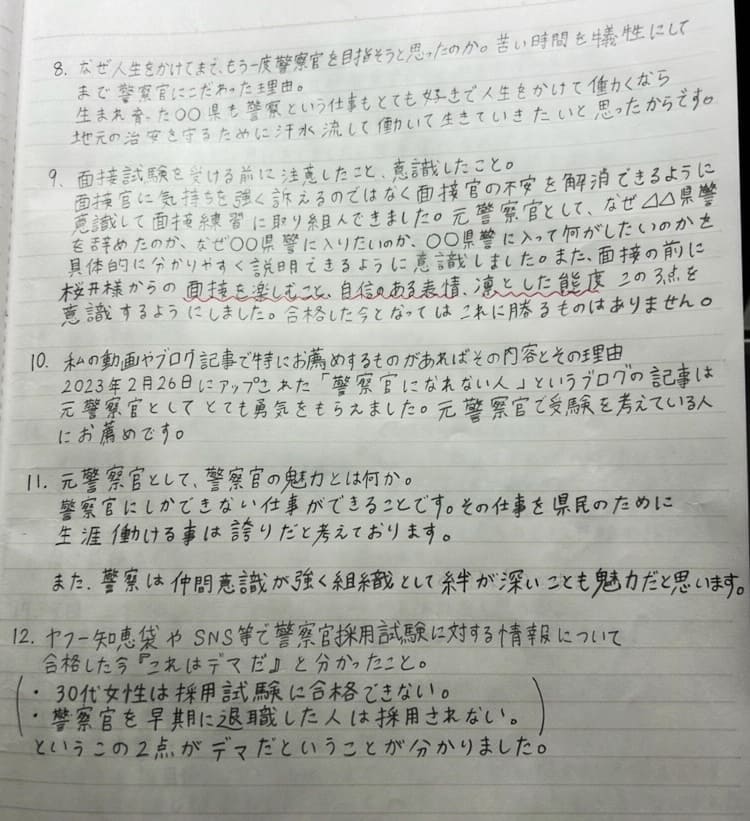 8. なぜ人生をかけてまで、もう一度警察官を目指そうと思ったのか。苦い時間を犠牲にして
まで警察官にこだわった理由。
生まれ育った〇〇県も警察という仕事もとても好きで人生をかけて働くなら
地元の治安を守るために汗水流して働いて生きていきたいと思ったからです。
9. 面接試験を受ける前に注意したこと、意識したこと。
面接官に気持ちを強く訴えるのではなく面接官の不安を解消できるように
意識して面接練習に取り組んできました。元警察官として、なぜ△△県警
を辞めたのか、なぜ〇〇県警に入りたいのか、〇〇県警に入って何がしたいのかを
具体的に分かりやすく説明できるように意識しました。また、面接の前に
桜井様からの面接を楽しむこと、自信のある表情、凛とした態度この3点を
意識するようにしました。合格した今となってはこれに勝るものはありません。
10. 私の動画やブログ記事で特にお薦めするものがあればその内容とその理由
2023年2月26日にアップされた「警察官になれない人」というブログの記事は
元警察官としてとても勇気をもらえました。元警察官で受験を考えている人
にお薦めです。
11. 元警察官として、警察官の魅力とは何か。
警察官にしかできない仕事ができることです。その仕事を県民のために
生涯働ける事は誇りだと考えております。
また、警察は仲間意識が強く組織として絆が深いことも魅力だと思います。
12. ヤフー知恵袋やSNS等で警察官採用試験に対する情報について
合格した今『これはデマだ』と分かったこと。
(・30代女性は採用試験に合格できない。
・警察官を早期に退職した人は採用されない。)
というこの2点がデマだということが分かりました。